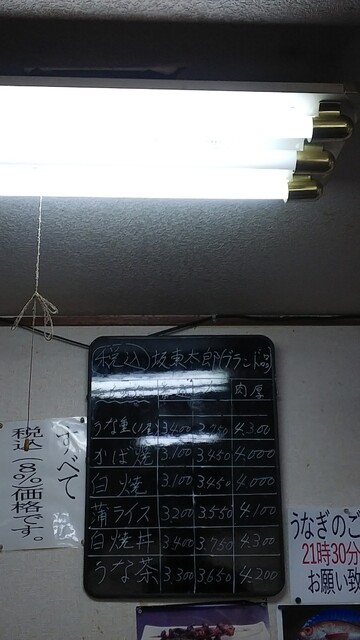 税込 坂東太郎(ブランド
肉厚
うな重 3,400 3,750 4,300
かば焼 3,100 3,450 4,000
白焼 3,100 3450 4,000
蒲ライス 3200 3,550 4,100
白焼丼 3,400 3,750 4,300
うな茶 3,300 3650 4,200
すべて
税込(8%)価格です。
うなぎのご
21時30分
お願い致